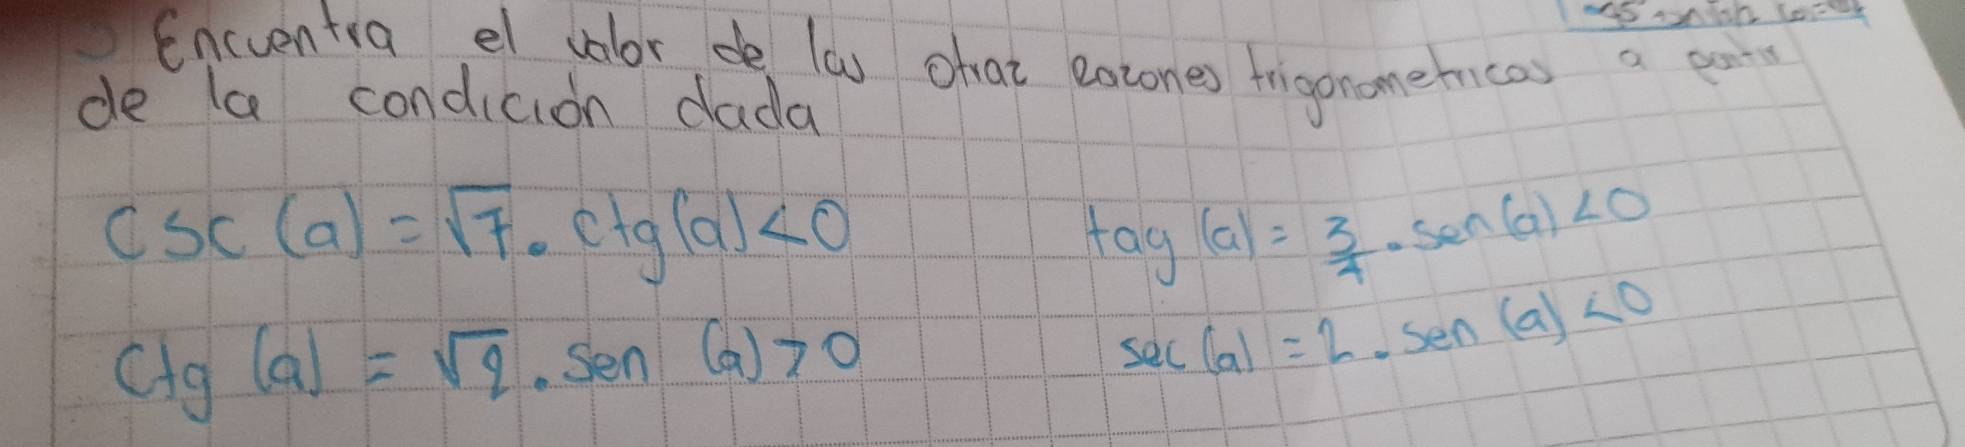 Encuentra el valor de las otraz razones trigonometricas a partir
de la condición dada
csc (a) = √7 . ctg (a) < 0
tag (a) = 3/4 . sen (a) < 0
ctg (a) = √2 . sen (a) > 0
sec (a) = 2 . sen (a) < 0